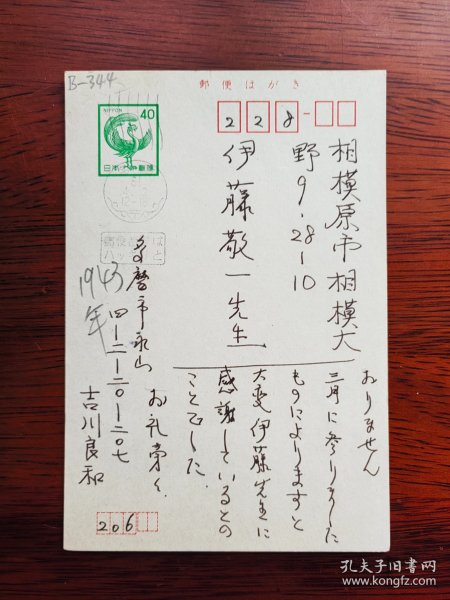 B-344
郵便はがき
NIPPON
40
日本郵便
228-
相模原市相模大
野9・28-10
伊藤敬一先生
おりません
三月に参りました
ものによりますと
大変伊藤先生に
感謝しているとの
ことでした
お礼旁々
多磨市永山
四-二-二〇-二〇七
吉川良和
1943
年
206
孔夫子旧书网
www.kongfz.com